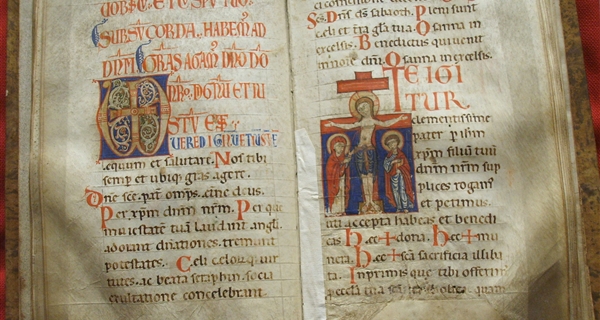 VOBIS C. ET CŪ SPŪ TUO.
SURSŪ CORDA. HABEM AD
DNM. GRAS AGAM DNO DO
NRO. DIGNŪ ET IU
STŪ EST.
UERE DIGNŪ ET IUSTŪ E
equum et salutare. Nos tibi
semp et ubiq gras agere.
Dne sce. pat omps. eterne deus.
Per xpm dnm nrm. Per que
maiestatē tuā laudant angli.
adorant dn̄ationes. tremunt
potestates. Celi celorūq; uir
tutes. ac beata seraphin. socia
exultatione concelebrant.
Scs. Dns ds sabaoth. Pleni sunt
celi et tra gla tua. Osanna in
excelsis. Benedictus qui uenit
in noie dni. Osanna in excelsis.
TE IGI
TUR
clementissime
pater p ihm
xpm filiū tuū
dnm nrm sup
plices rogam
et petimus
uti accepta habeas et benedi
cas. Hec + dona. hec + mu
nera. hec + scā sacrificia illiba
ta. Inprimis que tibi offerim
p eccla tua scā